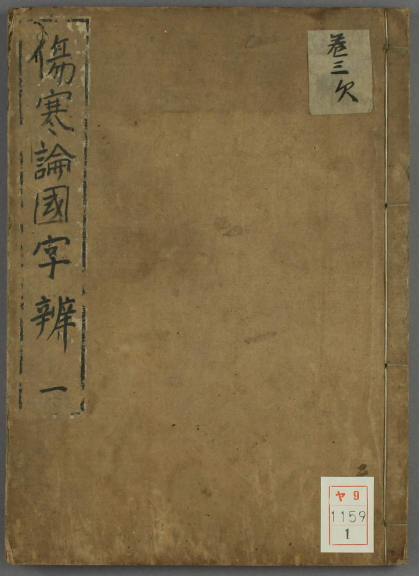 傷寒論國字辨 一
巻三欠
ヤ9
1159
1